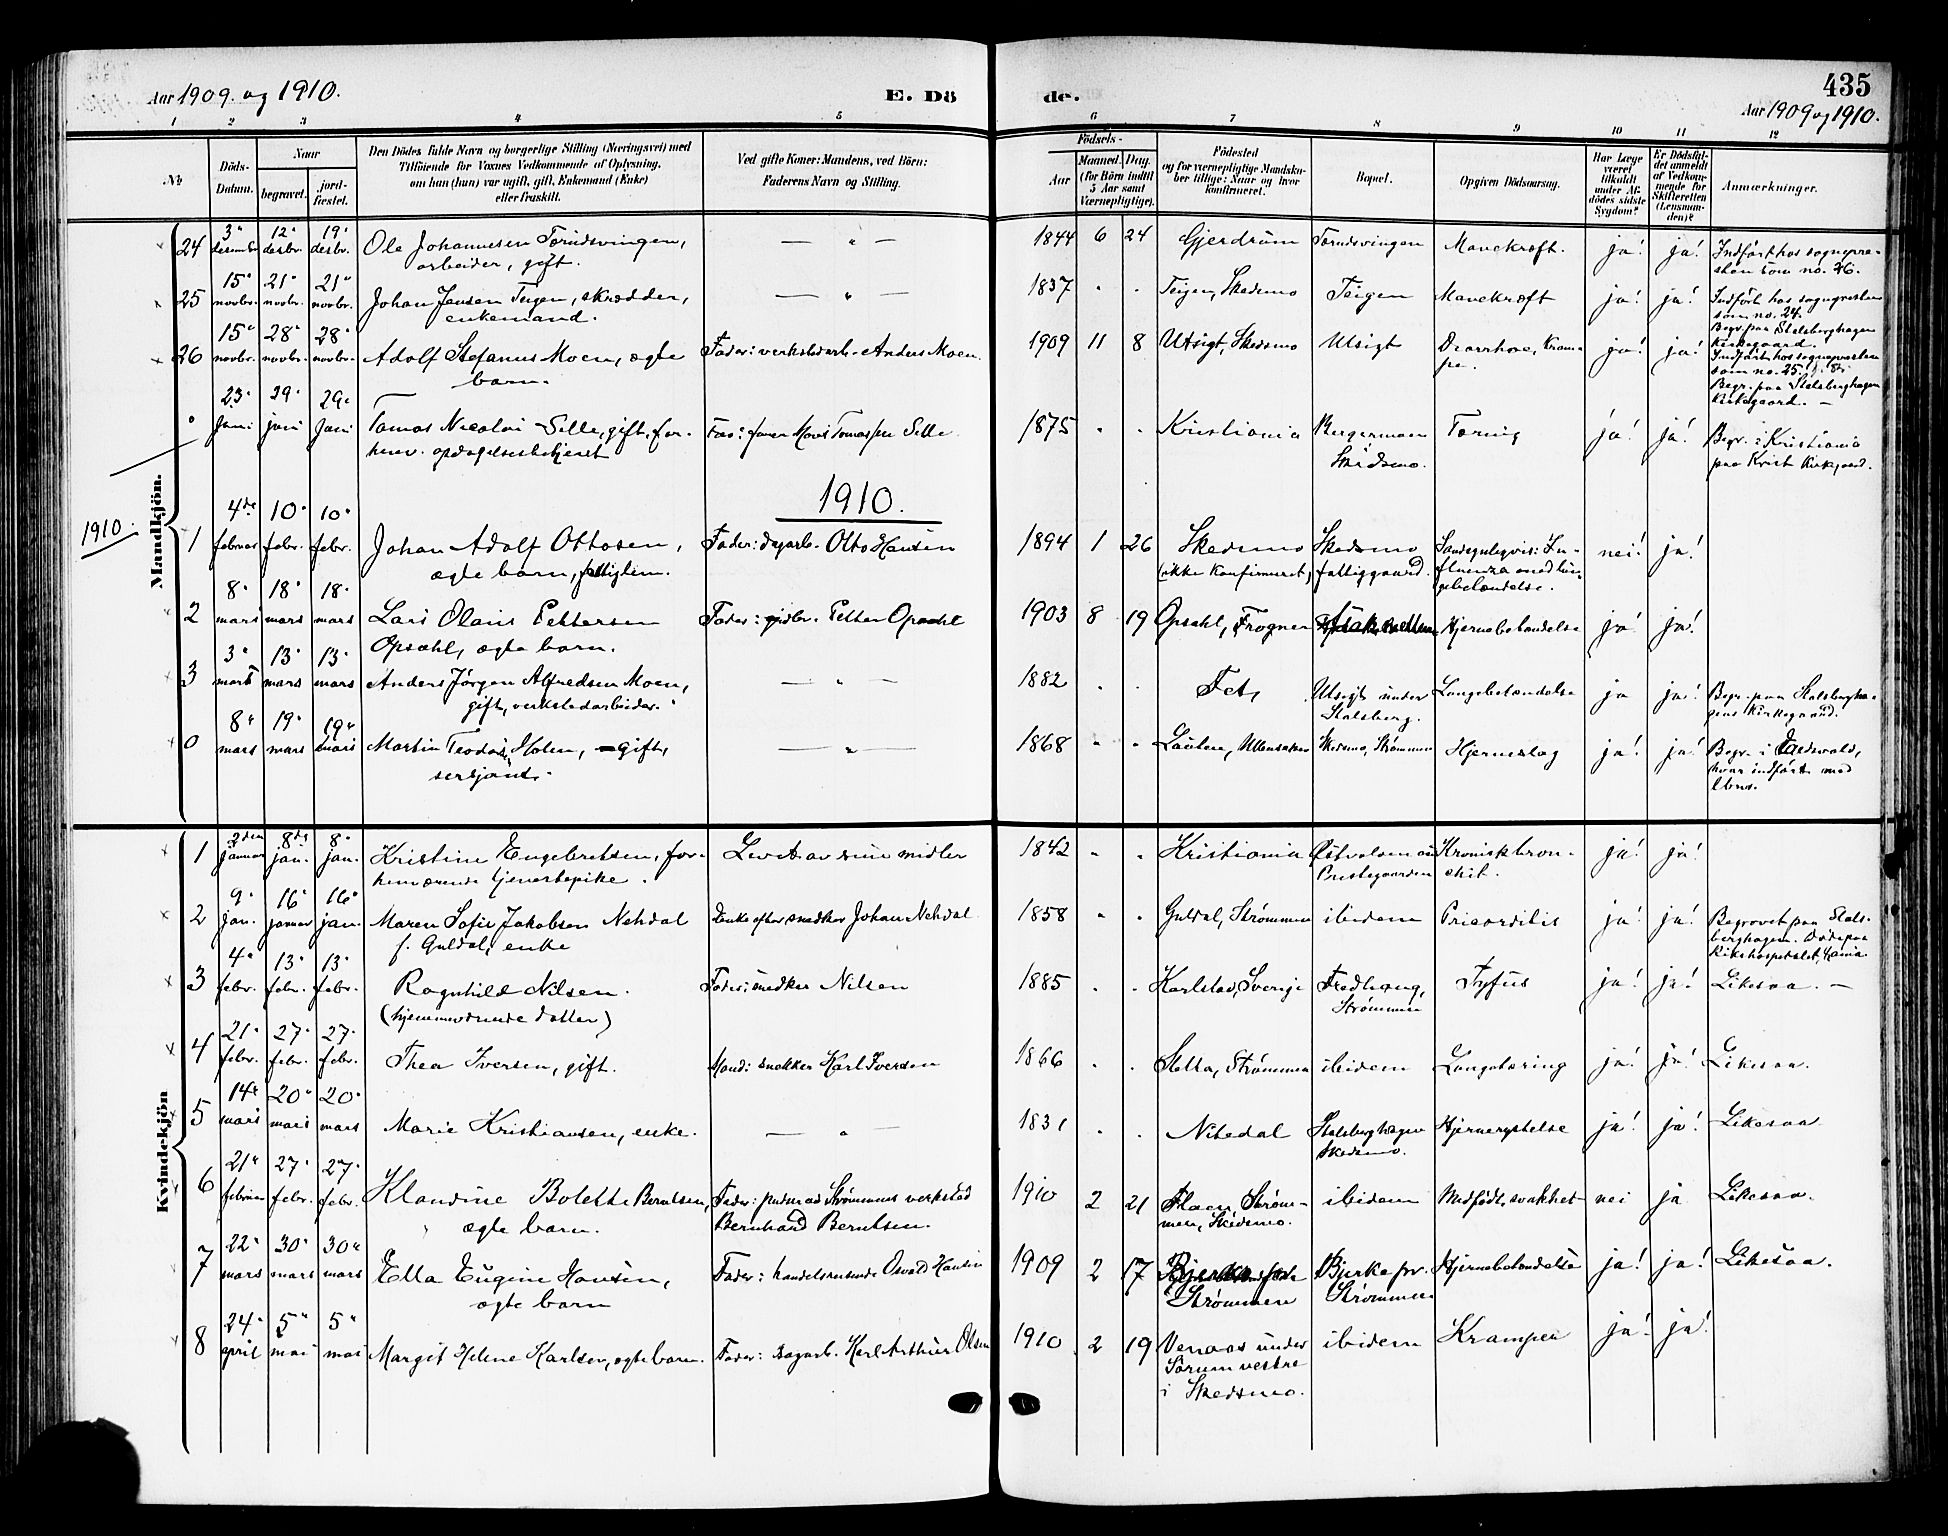 Aar 1909. og 1910.
E. Dö
de.
435
Aar 1909 og 1910.
1 2 3 4 5 6 7 8 9 10 11 12
№
Döds-Datum.
Naar
begravet.
jord-fæstet.
Den Dödes fulde Navn og borgerlige Stilling (Næringsvei) med
Tilföiende for Voxnes Vedkommende af Oplysning,
om han (hun) var ugift, gift, Enkemand (Enke)
eller fraskilt.
Ved gifte Koner: Mandens, ved Börn:
Faderens Navn og Stilling.
Födsels-
Aar
Maaned. Dag.
(for Börn indtil
5 Aar samt
Værnepligtige).
Födested
og for værnepligtige Mandskaber tillige: Naar og hvor
konfirmeret.
Bopæl.
Opgiven Dödsaarsag.
Har Læge
været
tilkaldt
under Afdödes sidste
Sygdom?
Er Dödsfaldet anmeldt
af Vedkommende for
Skifteretten
(Lensmanden)?
Anmærkninger.
Mandkjön.
24 3" desember 12" desbr. 19" desbr. Ole Johannesen Torudsvingen, — " — 1844 6 24 Gjerdrum Torudsvingen Mavekræft. ja! ja! Indført hos sognepre-
arbeider, gift. sten som no. 26.
25 15" novbr. 21" novbr. 21" novbr. Johan Jensen Teigen, skrædder, — " — 1837 " " Teigen, Skedsmo Teigen Mavekræft ja! ja! Indført hos sognepresten
enkemand. som no. 24.
Begr. paa Stalsberghagen
Kirkegaard.
26 15" novbr. 28" novbr. 28" novbr. Adolf Stefanus Moen, ægte Fader: verkstedarb. Anders Moen. 1909 11 8 Utsigt, Skedsmo Utsigt Diarrhoe, Kram- ja! ja! Indført hos sognepresten
barn. pe. som no. 25.
Begr. paa Stalsberghagen
Kirkegaard. —
" 23" juni 29" juni 29" juni Tomas Nicolai Selle, gift, for- 1875 " " Kristiania Bergermoen Tæring ja! ja! Begr. i Kristiania
henv. opdagelsesbetjent Skedsmo. paa Krist Kirkegaard.
1910.
1910.
1 4de februar 10" febr. 10" febr. Johan Adolf Ottosen, Fader: dagarb. Otto Hansen 1894 1 26 Skedsmo Skedsmo Sandsynligvis: In- nei! ja!
ægte barn, fattiglem. (ikke konfirmeret) fattiggaard. fluenza med lun-
gebetændelse.
2 8" mars 18" mars 18" mars Lars Olaus Pettersen Fader: Petter Opsahl 1903 8 19 Opsahl, Frogner Hjernebetændelse ja! ja!
Opsahl, ægte barn.
3 3" mars 13" mars 13" mars Anders Jørgen Alfredsen Moen, — " — 1882 " " Fet, Utsigt under Lungebetændelse ja ja! Begr. paa Stalsbergha-
gift, verkstedarbeider. Stalsberg. gens kirkegaard.
0 8" mars 19" mars 19" mars Martin Teodor Holen, gift, — " — 1868 " " Ullensaker Skedsmo, Strømmen Hjerneslag ja! ja! Begr. i Eidsvold,
sersjant. hvor indført med
Kvindekjön
1 2den januar 8de jan. 8" jan. Kristine Engebretsen, for- Levet av sine midler 1842 " " Kristiania Østvolsen Kronisk bron- ja! ja!
henværende tjenestepike. Prestegaarden chit.
2 9" jan. 16" januar 16" jan. Maren Sofie Jakobsen Nehdal Enke efter snedker Johan Nehdal 1858 " " Guldal, Strømmen ibidem Pericarditis ja! ja! Begravet paa Stals-
f. Guldal, enke berghagen. Døde paa
Rikshospitalet, Kania
3 4" febr. 13" febr. 13" febr. Ragnhild Nilsen. Fader: snedker Nilsen 1885 " " Karlstad, Sverige Fredhaug, Tyfus ja! ja! Likesaa. —
(hjemmeværende datter) Strømmen
4 21" febr. 27" febr. 27" febr. Thea Iversen, gift. Mand: snekker Karl Iversen 1866 " " Strømmen ibidem Lungetæring ja! ja! Likesaa.
5 14" mars 20" mars 20" mars Marie Kristiansen, enke. — " — 1831 " " Nitedal Stalsberghagen Hjernerystelse ja! ja! Likesaa.
Skedsmo.
6 21" februar 27" febr. 27" febr. Klaudine Bolette Berntsen, Fader: pudser ved Strømmens verksted 1910 2 21 Strøm- ibidem Medfødt svakhet nei ja Likesaa.
ægte barn. Bernhard Berntsen. men, Skedsmo.
7 22" mars 30" mars 30" mars Ella Eugine Hansen, Fader: handelsreisende Osvald Hansen 1909 2 17 Bjerke pr. Hjernebetændelse ja! ja! Likesaa.
ægte barn Strømmen Strømmen
8 24" april 5" mai 5" mai Margit Helene Karlsen, ægte barn. Fader: Dagarb. Karl Arthur Olsen 1910 2 19 Venaas under ibidem Kramper ja! ja!
Sørum vestre
i Skedsmo.